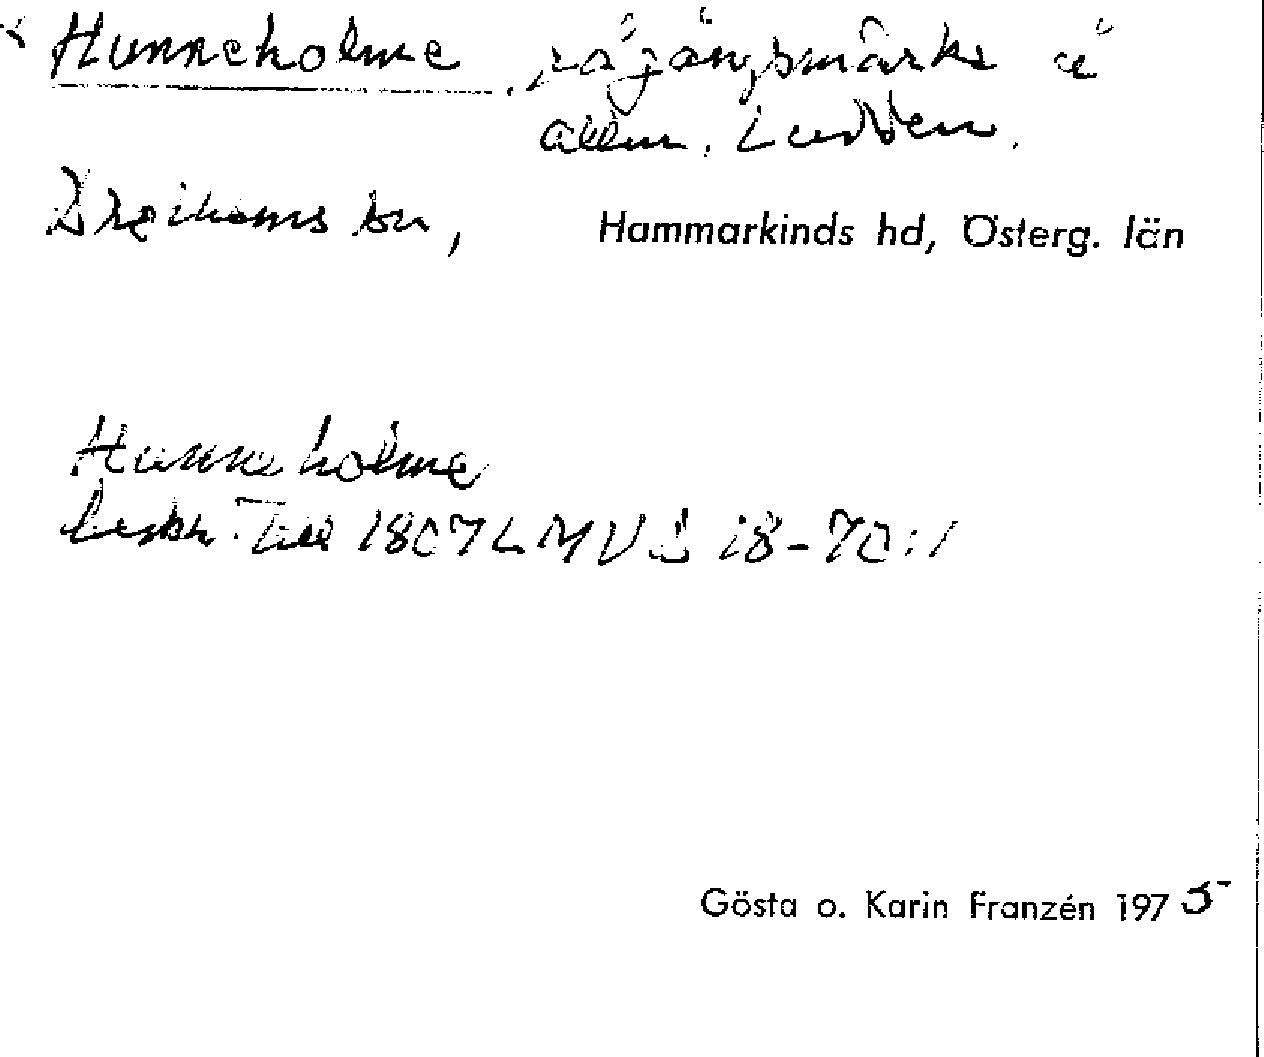 x Hunneholme, rågångsmärke å
allm. Ludden.
Skällviks sn, Hammarkinds hd, Österg. län
Hunneholme
beskr. till 1807 LMV D 18-70:1
Gösta o. Karin Franzén 1975